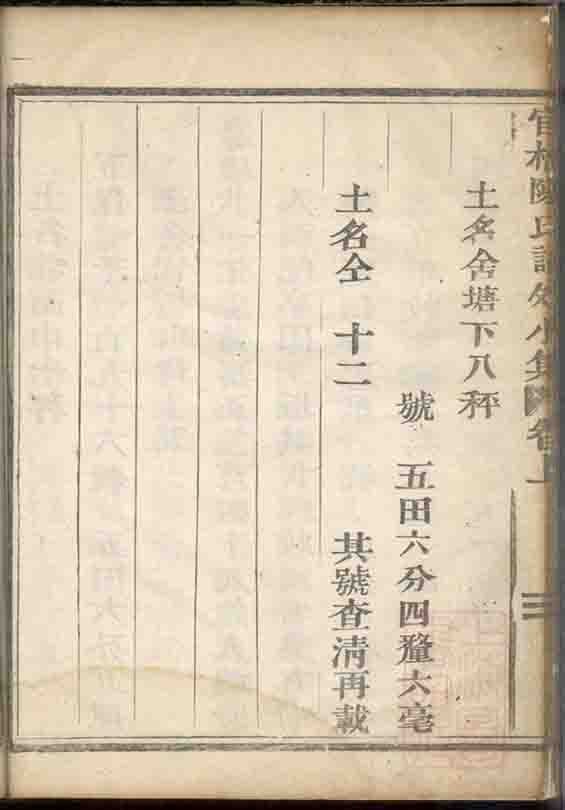 土名舍塘下八秤
號　五田六分四釐六毫
土名仝　十二　其號查清再載
氏譜外小集
卷上
三